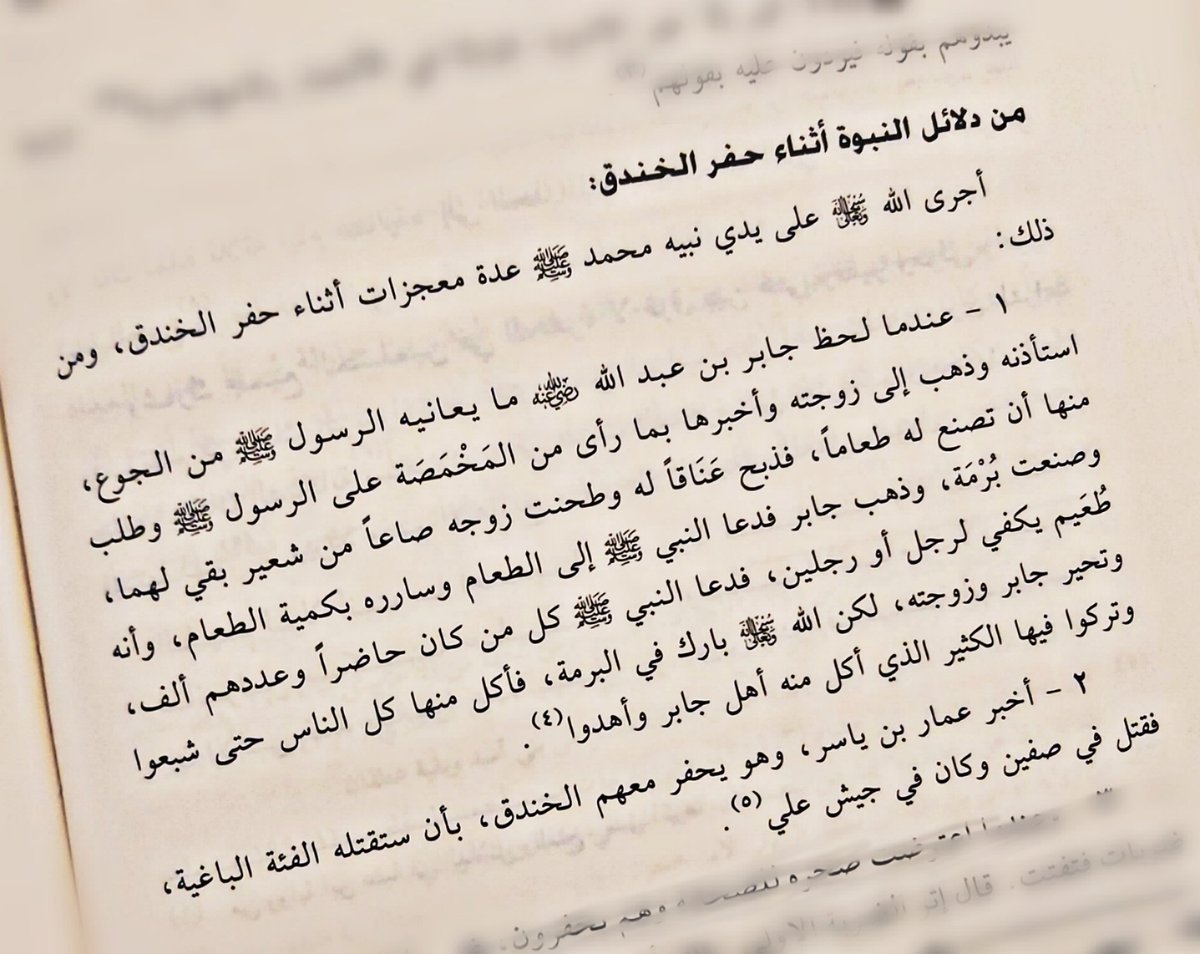 يبدؤهم بقوله فيردون عليه بقولهم(٣)
من دلائل النبوة أثناء حفر الخندق:
أجرى الله ﷾ على يدي نبيه محمد ﷺ عدة معجزات أثناء حفر الخندق، ومن
ذلك:
١ - عندما لحظ جابر بن عبد الله رضي الله عنه ما يعانيه الرسول ﷺ من الجوع،
استأذنه وذهب إلى زوجته وأخبرها بما رأى من المَخْمَصَة على الرسول ﷺ وطلب
منها أن تصنع له طعاماً، فذبح عَنَاقاً له وطحنت زوجه صاعاً من شعير بقي لهما،
وصنعت بُرْمَة، وذهب جابر فدعا النبي ﷺ إلى الطعام وسارره بكمية الطعام، وأنه
طُعَيم يكفي لرجل أو رجلين، فدعا النبي ﷺ كل من كان حاضراً وعددهم ألف،
وتحير جابر وزوجته، لكن الله ﷾ بارك في البرمة، فأكل منها كل الناس حتى شبعوا
وتركوا فيها الكثير الذي أكل منه أهل جابر وأهدوا(٤).
٢ - أخبر عمار بن ياسر، وهو يحفر معهم الخندق، بأن ستقتله الفئة الباغية،
فقتل في صفين وكان في جيش علي(٥).
صخرة وهم يحفرون،
فتفتت. قال إثر الضربة الأولى